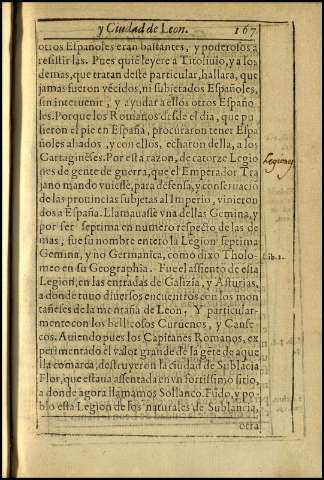 y Ciudad de Leon. 167
otros Españoles eran bastantes, y poderosos a
resistirlas. Pues quiē leyere a Titoliuio, y a lo
demas, que tratan deste particular, hallara, que
jamas fueron vēcidos, ni subjetados Españoles,
sin interuenir, y ayudar a ellos otros Españo-
les. Porque los Romanos desde el dia, que pu
sieron el pie en España, procuraron tener Espa
ñoles aliados, y con ellos, echaron della, a los
Cartagineses. Por esta razon, de catorze Legio
nes de gente de guerra, que el Emperador Tra
jano mando vuiesse, para defensa, y conseruaciō
de las prouincias subjetas al Imperio, vinieron
dos a España. Llamauasse vna dellas Gemina, y
por ser septima en numero respecto de las de
mas, fue su nombre entero la Legion septima
Gemina, y no Germanica, como dixo Tholo-
meo en su Geographia. Fue el assiento de esta
Legion, en las entradas de Galizia, y Asturias,
a donde tuuo diuersos encuentros con los mon
tañeses de la mōtaña de Leon, Y particular-
mente con los bellicosos Curuenos, y Canse-
cos. Auiendo pues los Capitanes Romanos, ex
perimentado el valor grande de la gēte de aque
lla comarca, destruyeron la ciudad de Sublacia
Flor, que estaua assentada en vn fortissimo sitio,
a donde agora llamamos Sollanco. Fūdo, y po-
blo esta Legion de los naturales de Sublancia,
otra
Legiones
Lib. 2.